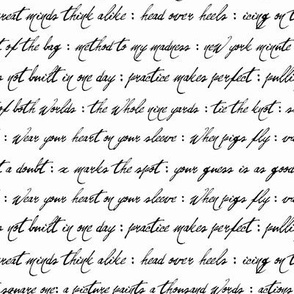 great minds think alike : head over heels : icing on t
t of the bag : method to my madness : new york minute
s not built in one day : practice makes perfect : pulli
of both worlds : the whole nine yards : tie the knot : s
: wear your heart on your sleeve : when pigs fly :
t a doubt : x marks the spot : your guess is as good
: wear your heart on your sleeve : when pigs fly :
s not built in one day : practice makes perfect : pulli
great minds think alike : head over heels : icing on t
square one : a picture paints a thousand words : actions